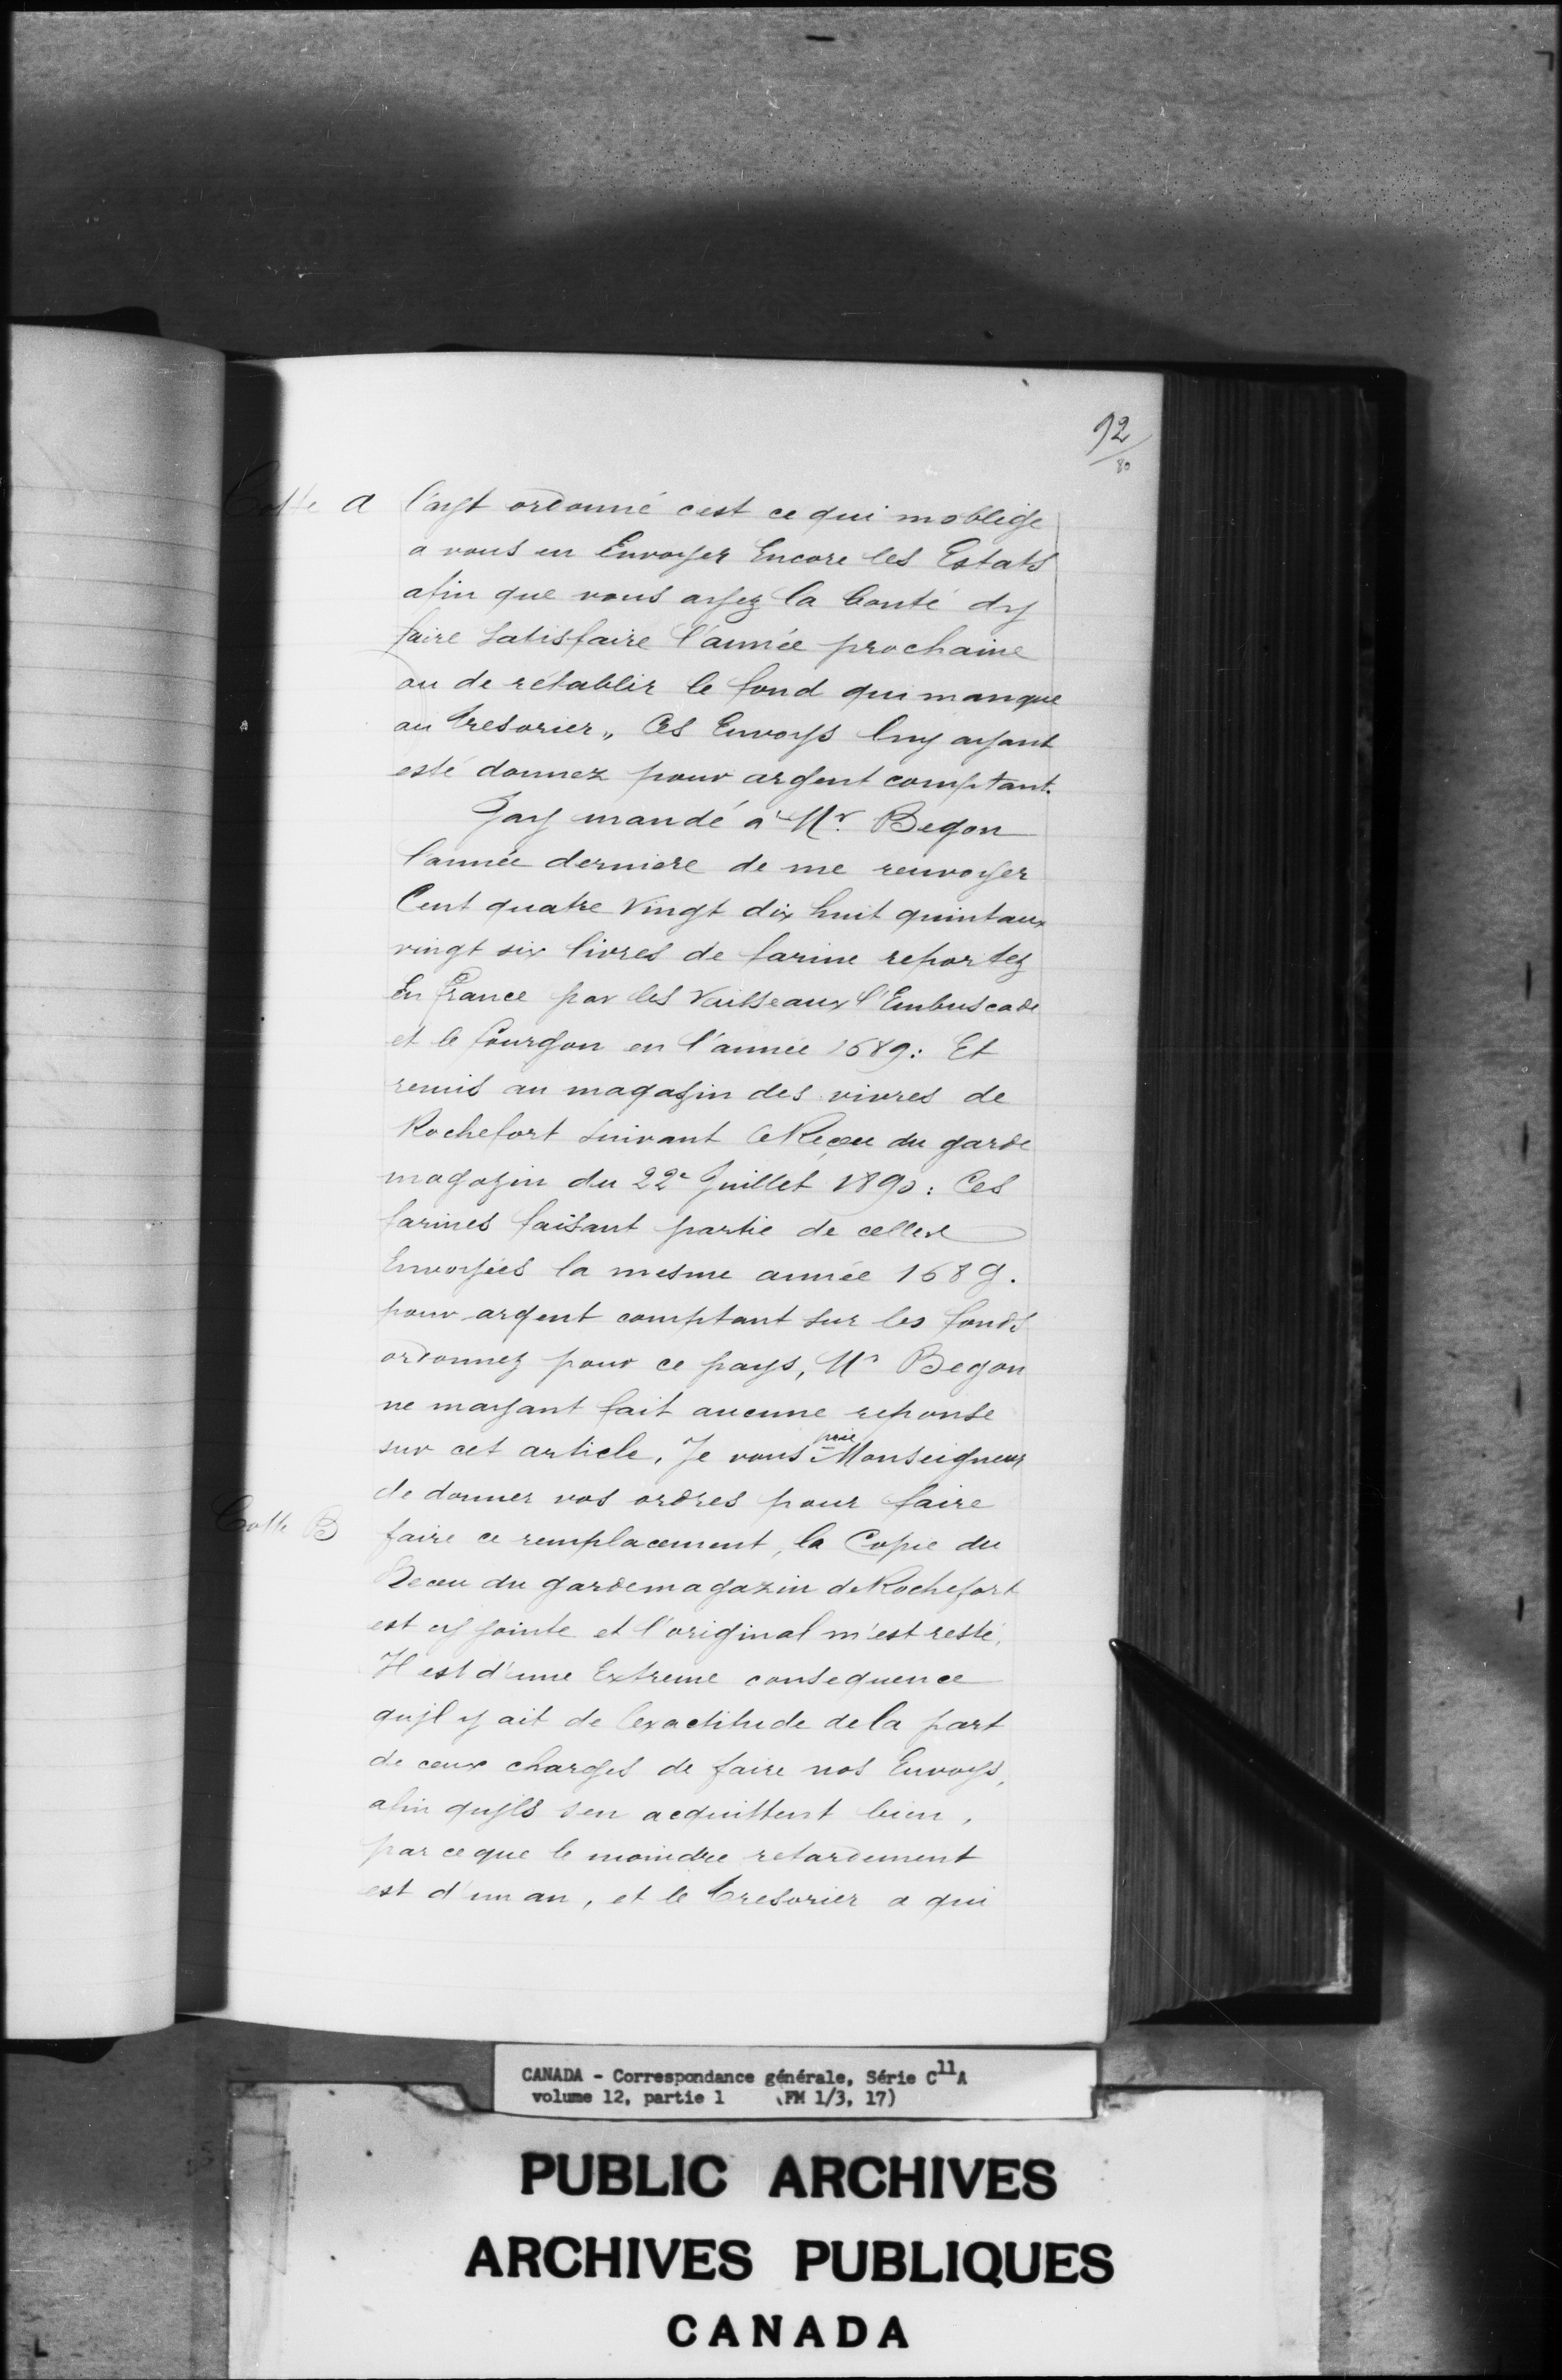 92
80
Cotte A l'ayt ordonné c'est ce qui m'oblige
a vous en Envoyer Encore les Estats
afin que vous ayez la bonté dy
faire satisfaire l'année prochaine
ou de rétablir le fond qui manque
au tresorier, Ces Envoys luy ayant
esté donnez pour argent comptant.
Jay mandé à Mr. Begon
l'année derniere de me renvoyer
Cent quatre Vingt dix huit quintaux
vingt six livres de farine reportez
En France par les Vaisseaux l'Embuscade
et le fourgon en l'année 1689: Et
remis au magasin des vivres de
Rochefort suivant le Reçeu du garde
magazin du 22e Juillet 1890: Ces
farines faisant partie de celles
Envoyées la mesme année 1689.
pour argent comptant sur les fonds
ordonnez pour ce pays, Mr Begon
ne mayant fait aucune reponse
sur cet article, Je vous prie Monseigneur
de donner vos ordres pour faire
Cotte B faire ce remplacement, la Copie du
Receu du gardemagazin de Rochefort
est cy jointe et l'original m'est resté.
Il est d'une Extreme consequence
qujl y ait de lexactitude de la part
de ceux charges de faire nos Envoys,
afin qujls sen acquittent bien,
par ce que le moindre retardement
est d'un an, et le tresorier a qui
CANADA - Correspondance générale, Série C11A
volume 12, partie 1 (FM 1/3, 17)
PUBLIC ARCHIVES
ARCHIVES PUBLIQUES
CANADA